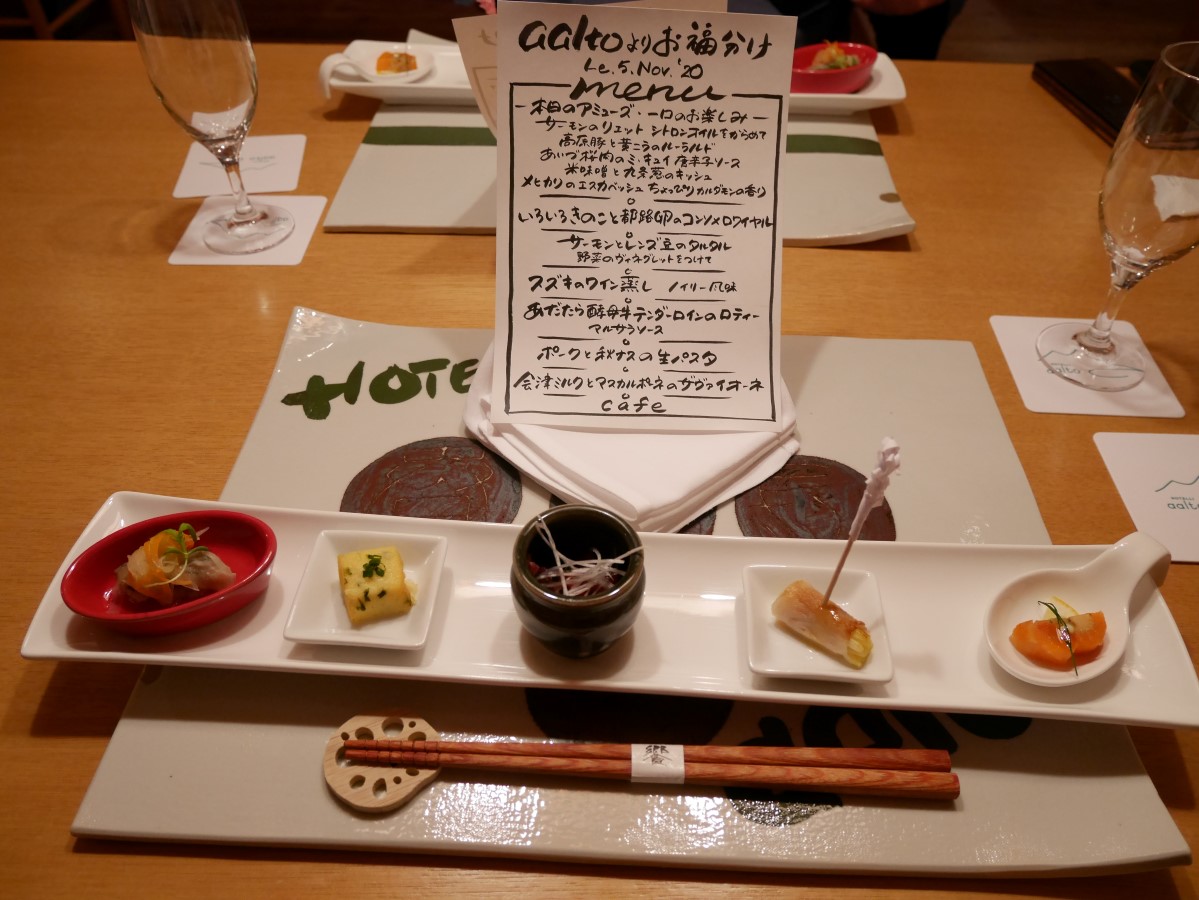 aaltoよりお福分け
Le.5.Nov.'20
menu
本日のアミューズ・一口のお楽しみ
サーモンのリエット シトロンオイルをからめて
高原豚と黄ニラのルーラルド
あいづ桜肉のミ・キュイ 唐辛子ソース
米味噌と九条葱のキッシュ
メヒカリのエスカベッシュ ちょっぴりカルダモンの香り
いろいろきのこと都路卵のコンソメロワイヤル
サーモンとレンズ豆のタルタル
野菜のヴィネグレットをつけて
スズキのワイン蒸し ノイリー風味
あだたら酵母牛テンダーロインのロティー
マルサラソース
ポークと秋ナスの生パスタ
会津ミルクとマスカルポーネのザヴァイオーネ
cafe
HOTE
aalto
aalto
響